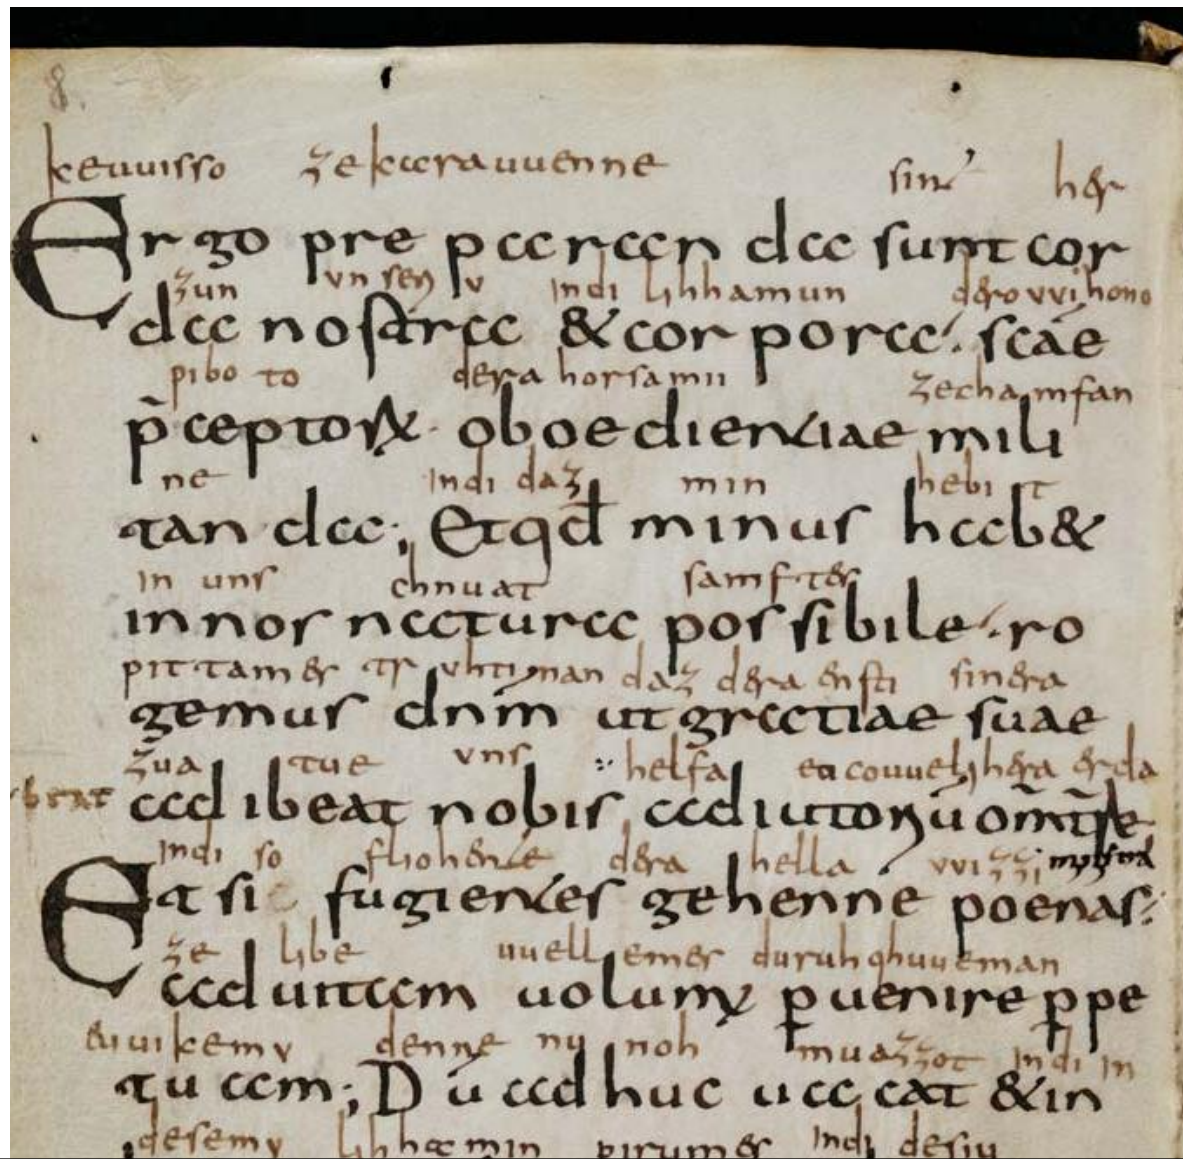 8.
keuuisso ze karauuenne sint her
Ergo preparan da sunt cor
zun unseriu indi lihhamun dero vvihono
da nostra & corpora. scae
piboto dera horsamii zechamfan
p̄ceptorū oboedientiae mili
ne indi daz min hebit
tanda; Et qđ minus hab&
in uns chnuat samfter
in nos natura possibile. ro
pittamer truhtinan daz dera ensti sinera
gemus dnm ut gratiae suae
zua tue uns helfa
btat ad ibeat nobis ad iutoriū
indi so fliohente dera hella vvizzi
Et si fugientes gehenne poenas
ze libe uuellemer duruhqhuueman
ad uitam uolumus puenire ppe
euuikemv denne nu noh muazzot indi in
tuam; Dū adhuc uacat & in
desemv lihhamin pirumer indi desiu